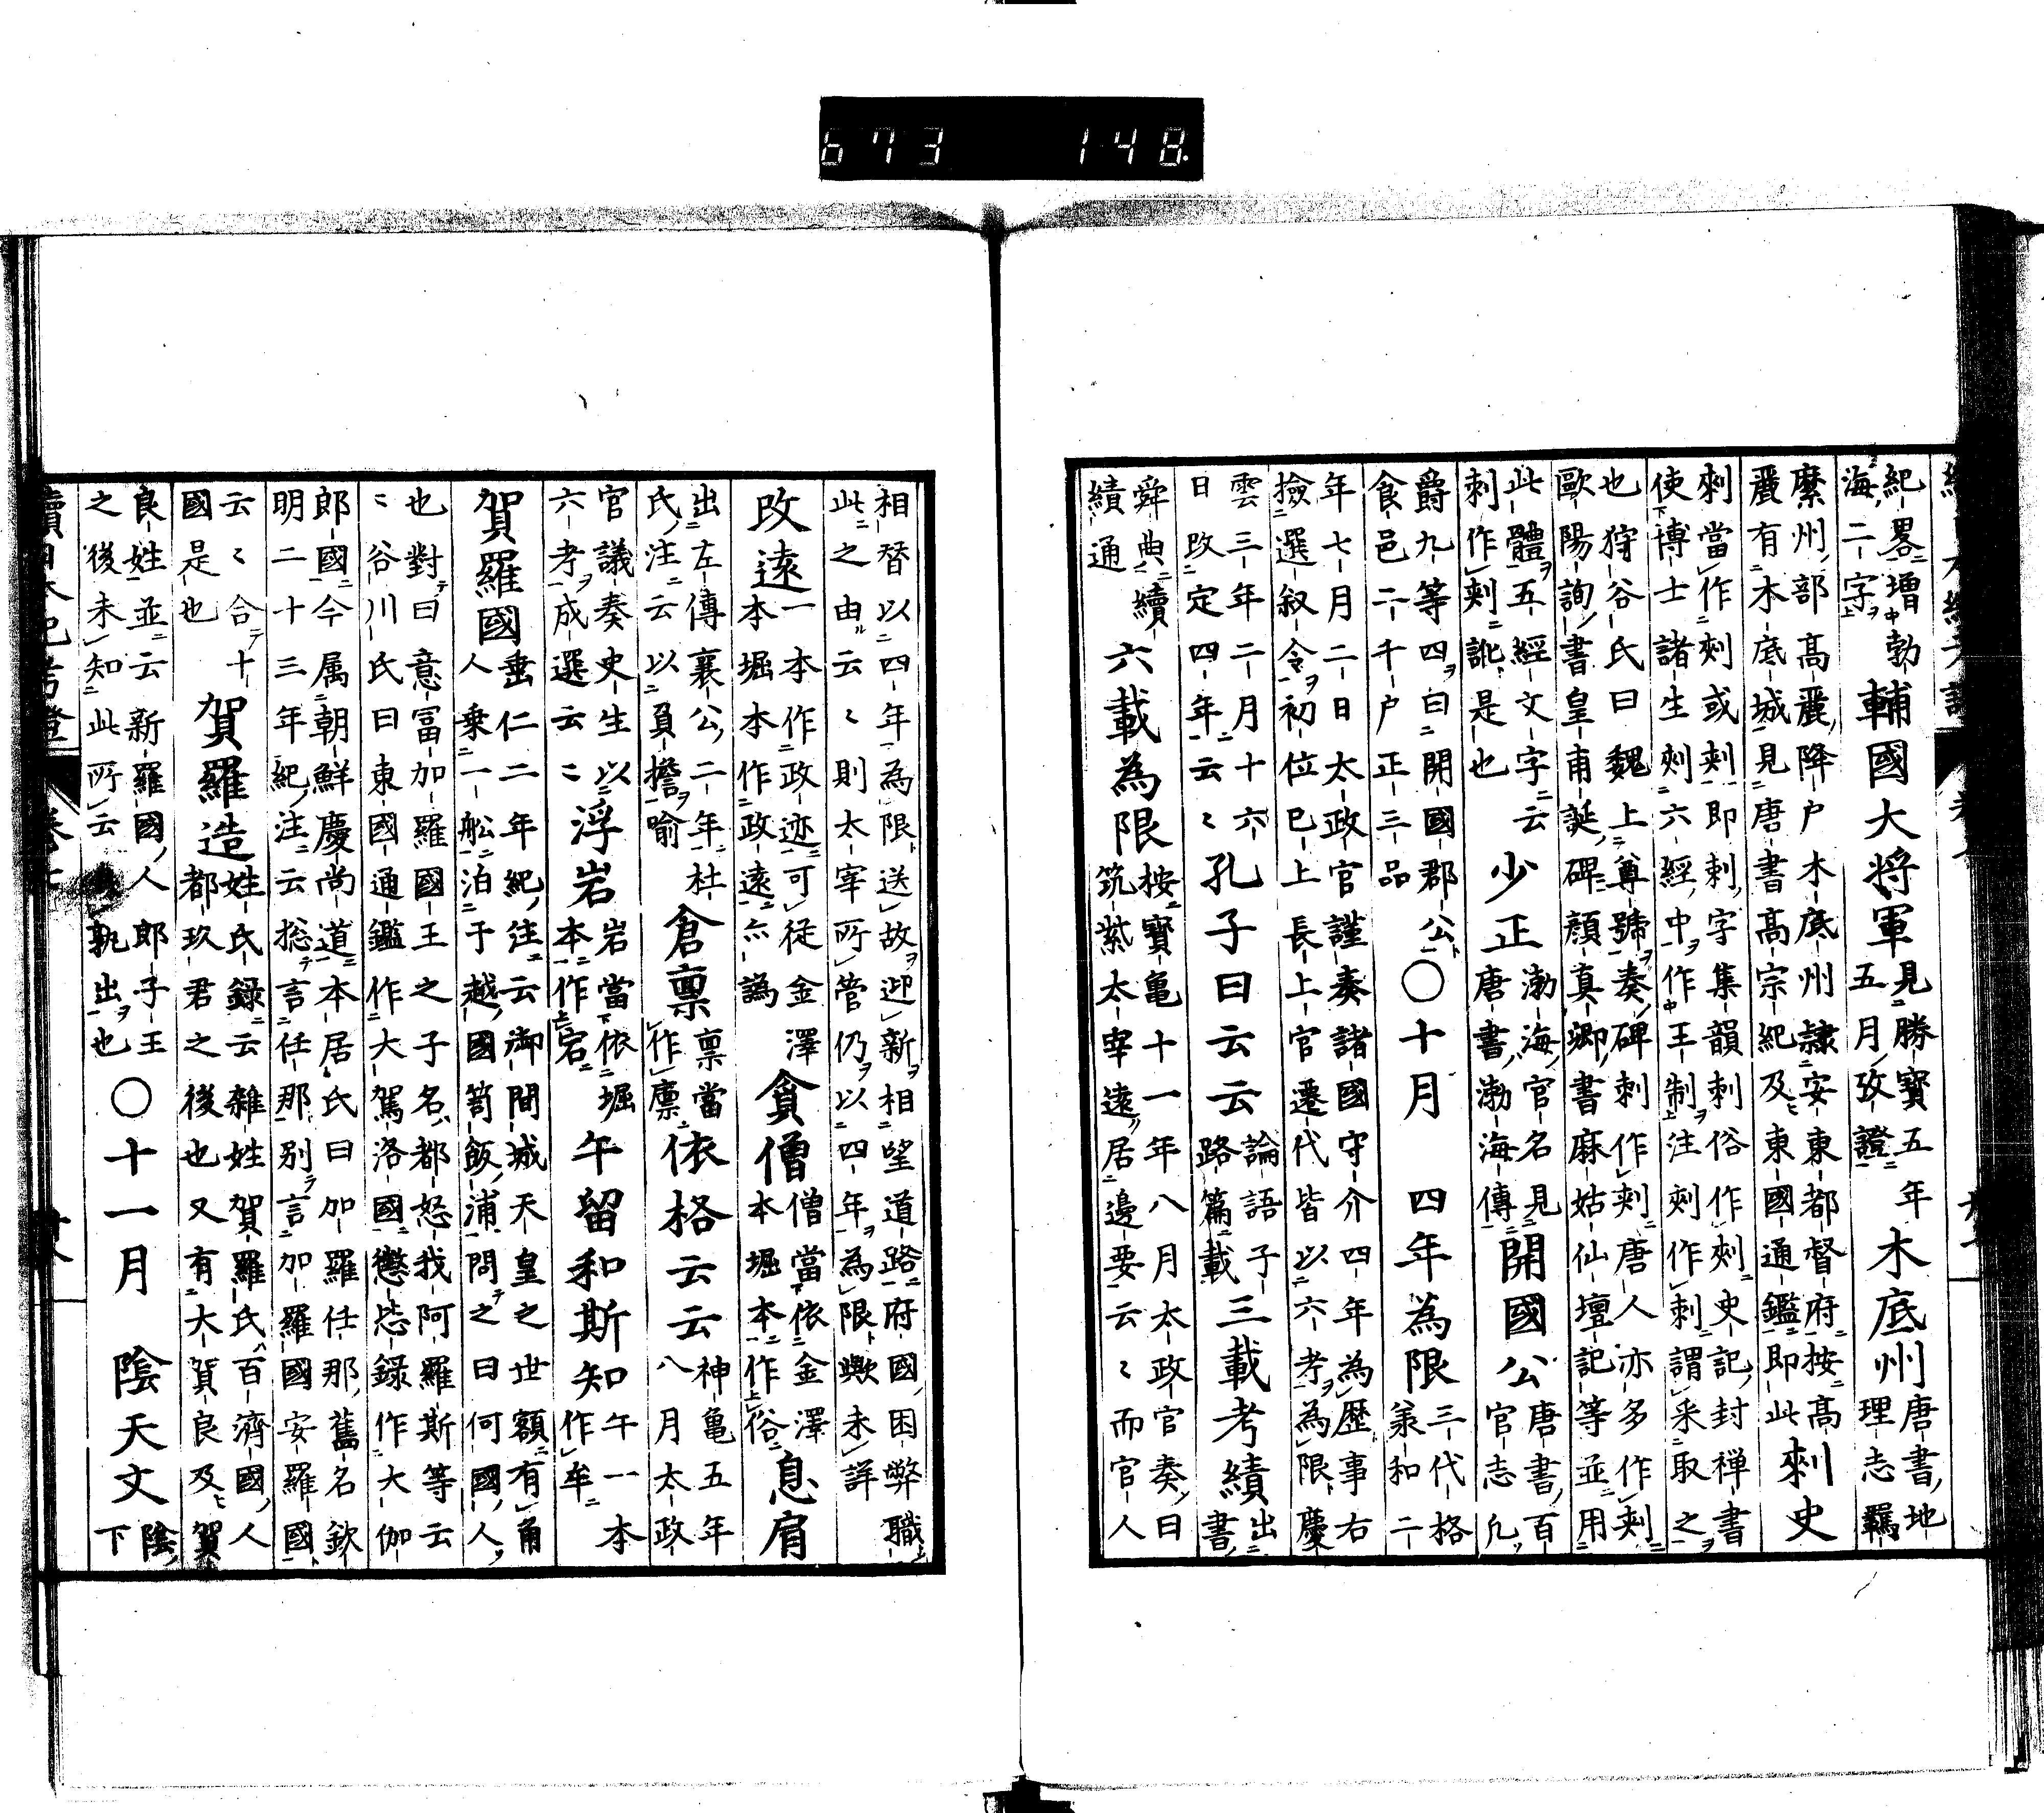 673 148
紀畧増勃
海二字
輔國大将軍
見勝寳五年
五月攷證
木底州
唐書地
理志羈
縻州部髙麗降户木底州隷安東都督府按髙
麗有木底城見唐書髙宗紀及東國通鑑即此
刺史
刺當作刾或㓨即刺字集韻刺俗作㓨史記封禅書
使博士諸生㓨六經中作王制注㓨作刺謂采取之
也狩谷氏曰魏上尊號奏碑刺作㓨唐人亦多作㓨
歐陽詢書皇甫誕碑顔真卿書麻姑仙壇記等並用
此體五經文字云
刺作㓨訛是也
少正
渤海官名見
唐書渤海傳
開國公
唐書百
官志凡
爵九等四曰開國郡公
食邑二千户正三品
〇十月
四年為限
三代格
承和二
年七月二日太政官謹奏諸國守介四年為歴事右
撿選叙令初位已上長上官遷代皆以六考為限慶
雲三年二月十六
日改定四年云〻
孔子曰云云
論語子
路篇載
三載考績
出
書
舜典續
績通
六載為限
按寳亀十一年八月太政官奏曰
筑紫太宰遠居邊要云〻而官人
相替以四年為限送故迎新相望道路府國困弊職
此之由云〻則太宰所管仍以四年為限歟未詳
改遠
一本作政迹可從金澤
本堀本作政遠亦譌
貪僧
僧當依金澤
本堀本作俗
息肩
出左傳襄公二年杜
氏注云以負擔喻
倉禀
禀當
作廪
依格云云
神亀五年
八月太政
官議奏史生以
六考成選云〻
浮岩
岩當依堀
本作宕
午留和斯知
午一本
作牟
賀羅國
垂仁二年紀注云御間城天皇之世額有角
人乗一舩泊于越國笥飯浦問之曰何國人
也對曰意富加羅國王之子名都怒我阿羅斯等云
〻谷川氏曰東國通鑑作大駕洛國懲毖錄作大伽
郎國今属朝鮮慶尚道本居氏曰加羅任那舊名欽
明二十三年紀注云揔言任那别言加羅國安羅國
云〻合十
國是也
賀羅造
姓氏録云雑姓賀羅氏百濟國人
都玖君之後也又有大賀良及賀
良姓並云新羅國人郎子王
之後未知此所云孰出也
〇十一月
陰天文
陰
下